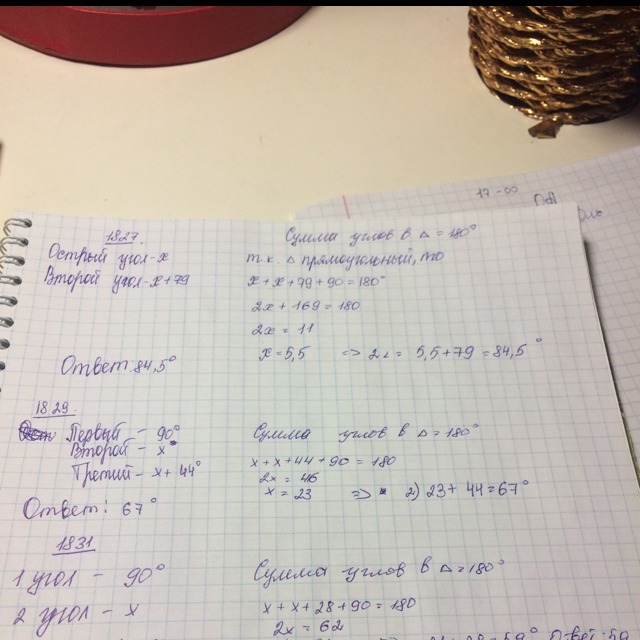 17-00
1827.
Сумма углов в △ = 180°
Острый угол - x
т.к. △ прямоугольный, то
Второй угол - x+79
x + x + 79 + 90 = 180°
2x + 169 = 180
2x = 11
x = 5,5 => 2∠ = 5,5 + 79 = 84,5°
Ответ 84,5°
1829
Первый - 90°
Сумма углов в △ = 180°
Второй - x°
x + x + 44 + 90 = 180
Третий - x + 44°
2x = 46
x = 23 => 2) 23 + 44 = 67°
Ответ: 67°
1831
1 угол - 90°
Сумма углов в △ = 180°
2 угол - x
x + x + 28 + 90 = 180
2x = 62